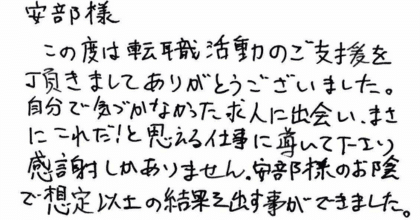 安部様
この度は転職活動のご支援を
頂きましてありがとうございました。
自分で気づかなかった求人に出会い、まさ
にこれだ!と思える仕事に導いて下さり
感謝しかありません。安部様のお陰
で想定以上の結果を出す事ができました。